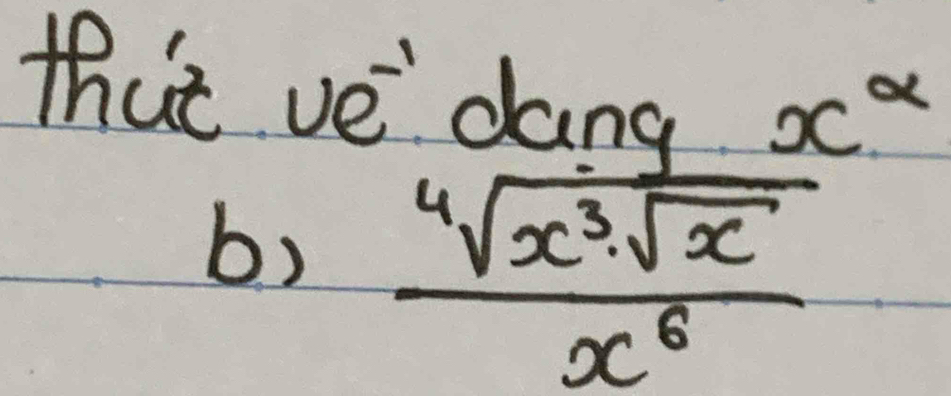 thức về dạng x^α
b) \frac{\sqrt[4]{x^3.\sqrt{x}}}{x^6}